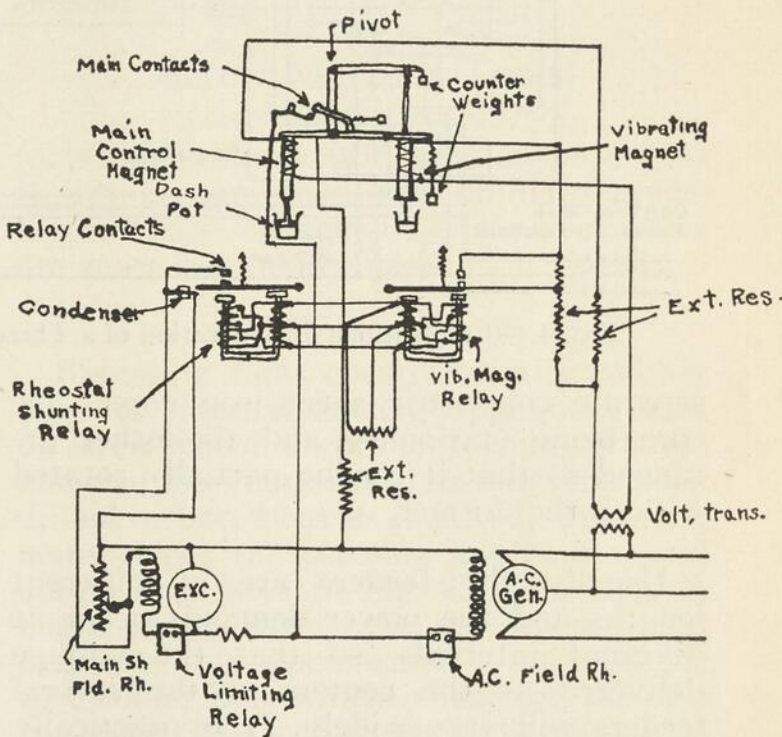 Pivot
Main Contacts
Counter
Weights
Main
Control
Magnet
Vibrating
Magnet
Dash
Pot
Relay Contacts
Condenser
Ext. Res.
Vib. Mag.
Relay
Rheostat
Shunting
Relay
Ext.
Res.
Volt, trans.
EXC.
A.C.
Gen.
Main Sh
Fld. Rh.
Voltage
Limiting
Relay
A.C. Field Rh.